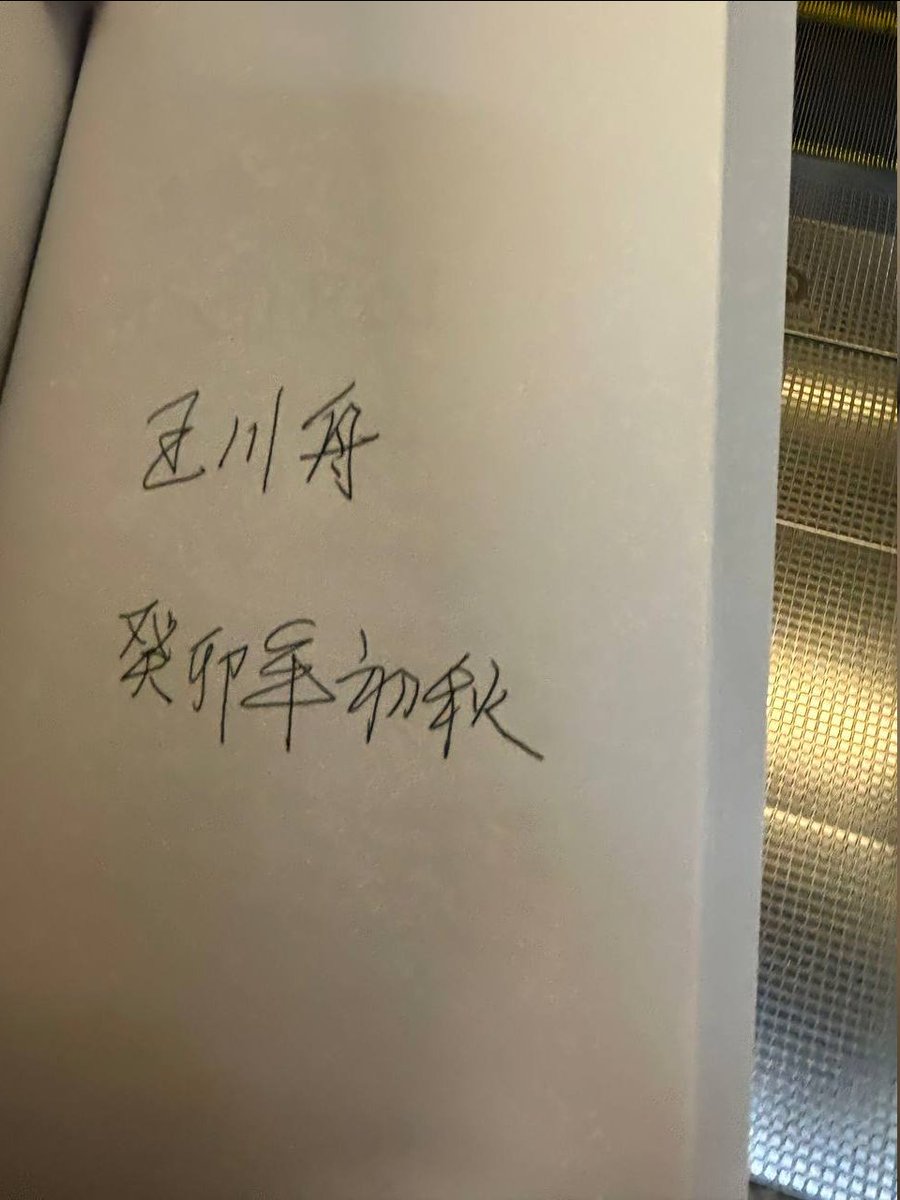 王川舟
癸卯年初秋